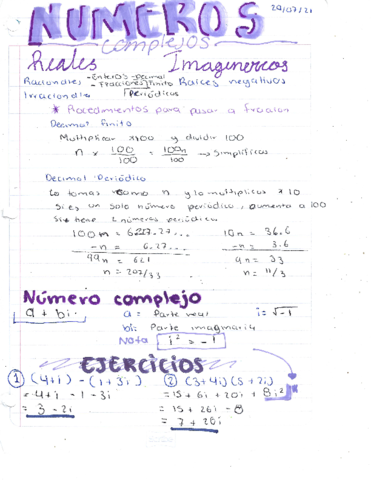 29/07/21
NUMEROS
complejos
Reales Imaginericos
Racionales -Enteros -Decimal
-Fracciones finito Raices negativas
Irracionales Periódicos
* Procedimientos para pasar a fraccion
Decimal Finito
Multiplicar x100 y dividir 100
n x 100/100 = 100n/100 → Simplificas
Decimal Periódico
Lo tomas como n y lo multiplicas x 10
Si es un solo número periódico, aumenta a 100
Si tiene 2 números periódicos
100n = 627.27... 10n = 36.6
-n = 6.27... -n = 3.6
99n = 621 9n = 33
n = 207/33 n = 11/3
Número complejo
a + bi a = Parte real i = √-1
bi = Parte imaginaria
Nota i² = -1
EJERCICIOS
① (4+i) - (1+3i) ② (3+4i)(5+2i)
= 4+i -1 -3i = 15 + 6i + 20i + 8i²
= 3 - 2i = 15 + 26i - 8
= 7 + 26i